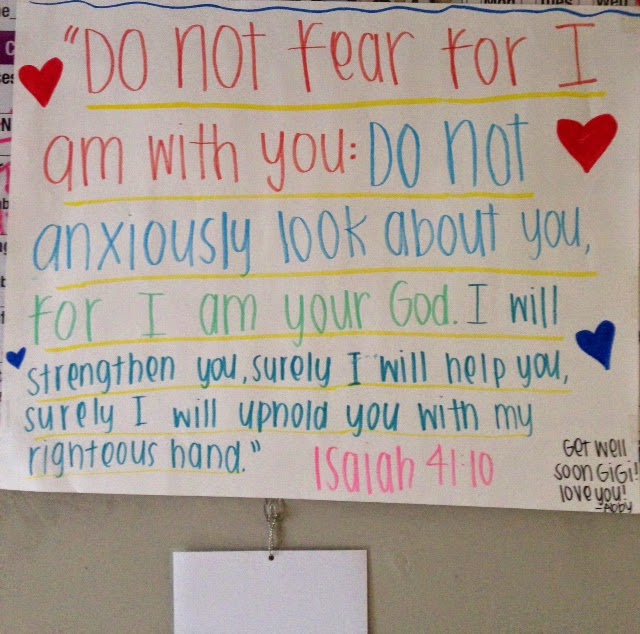 "Do not fear for I
am with you: Do not
anxiously look about you,
for I am your God. I will
strengthen you, surely I will help you,
surely I will uphold you with my
righteous hand."
Isaiah 41:10
Get well
soon GiGi!
love you!
-Abby